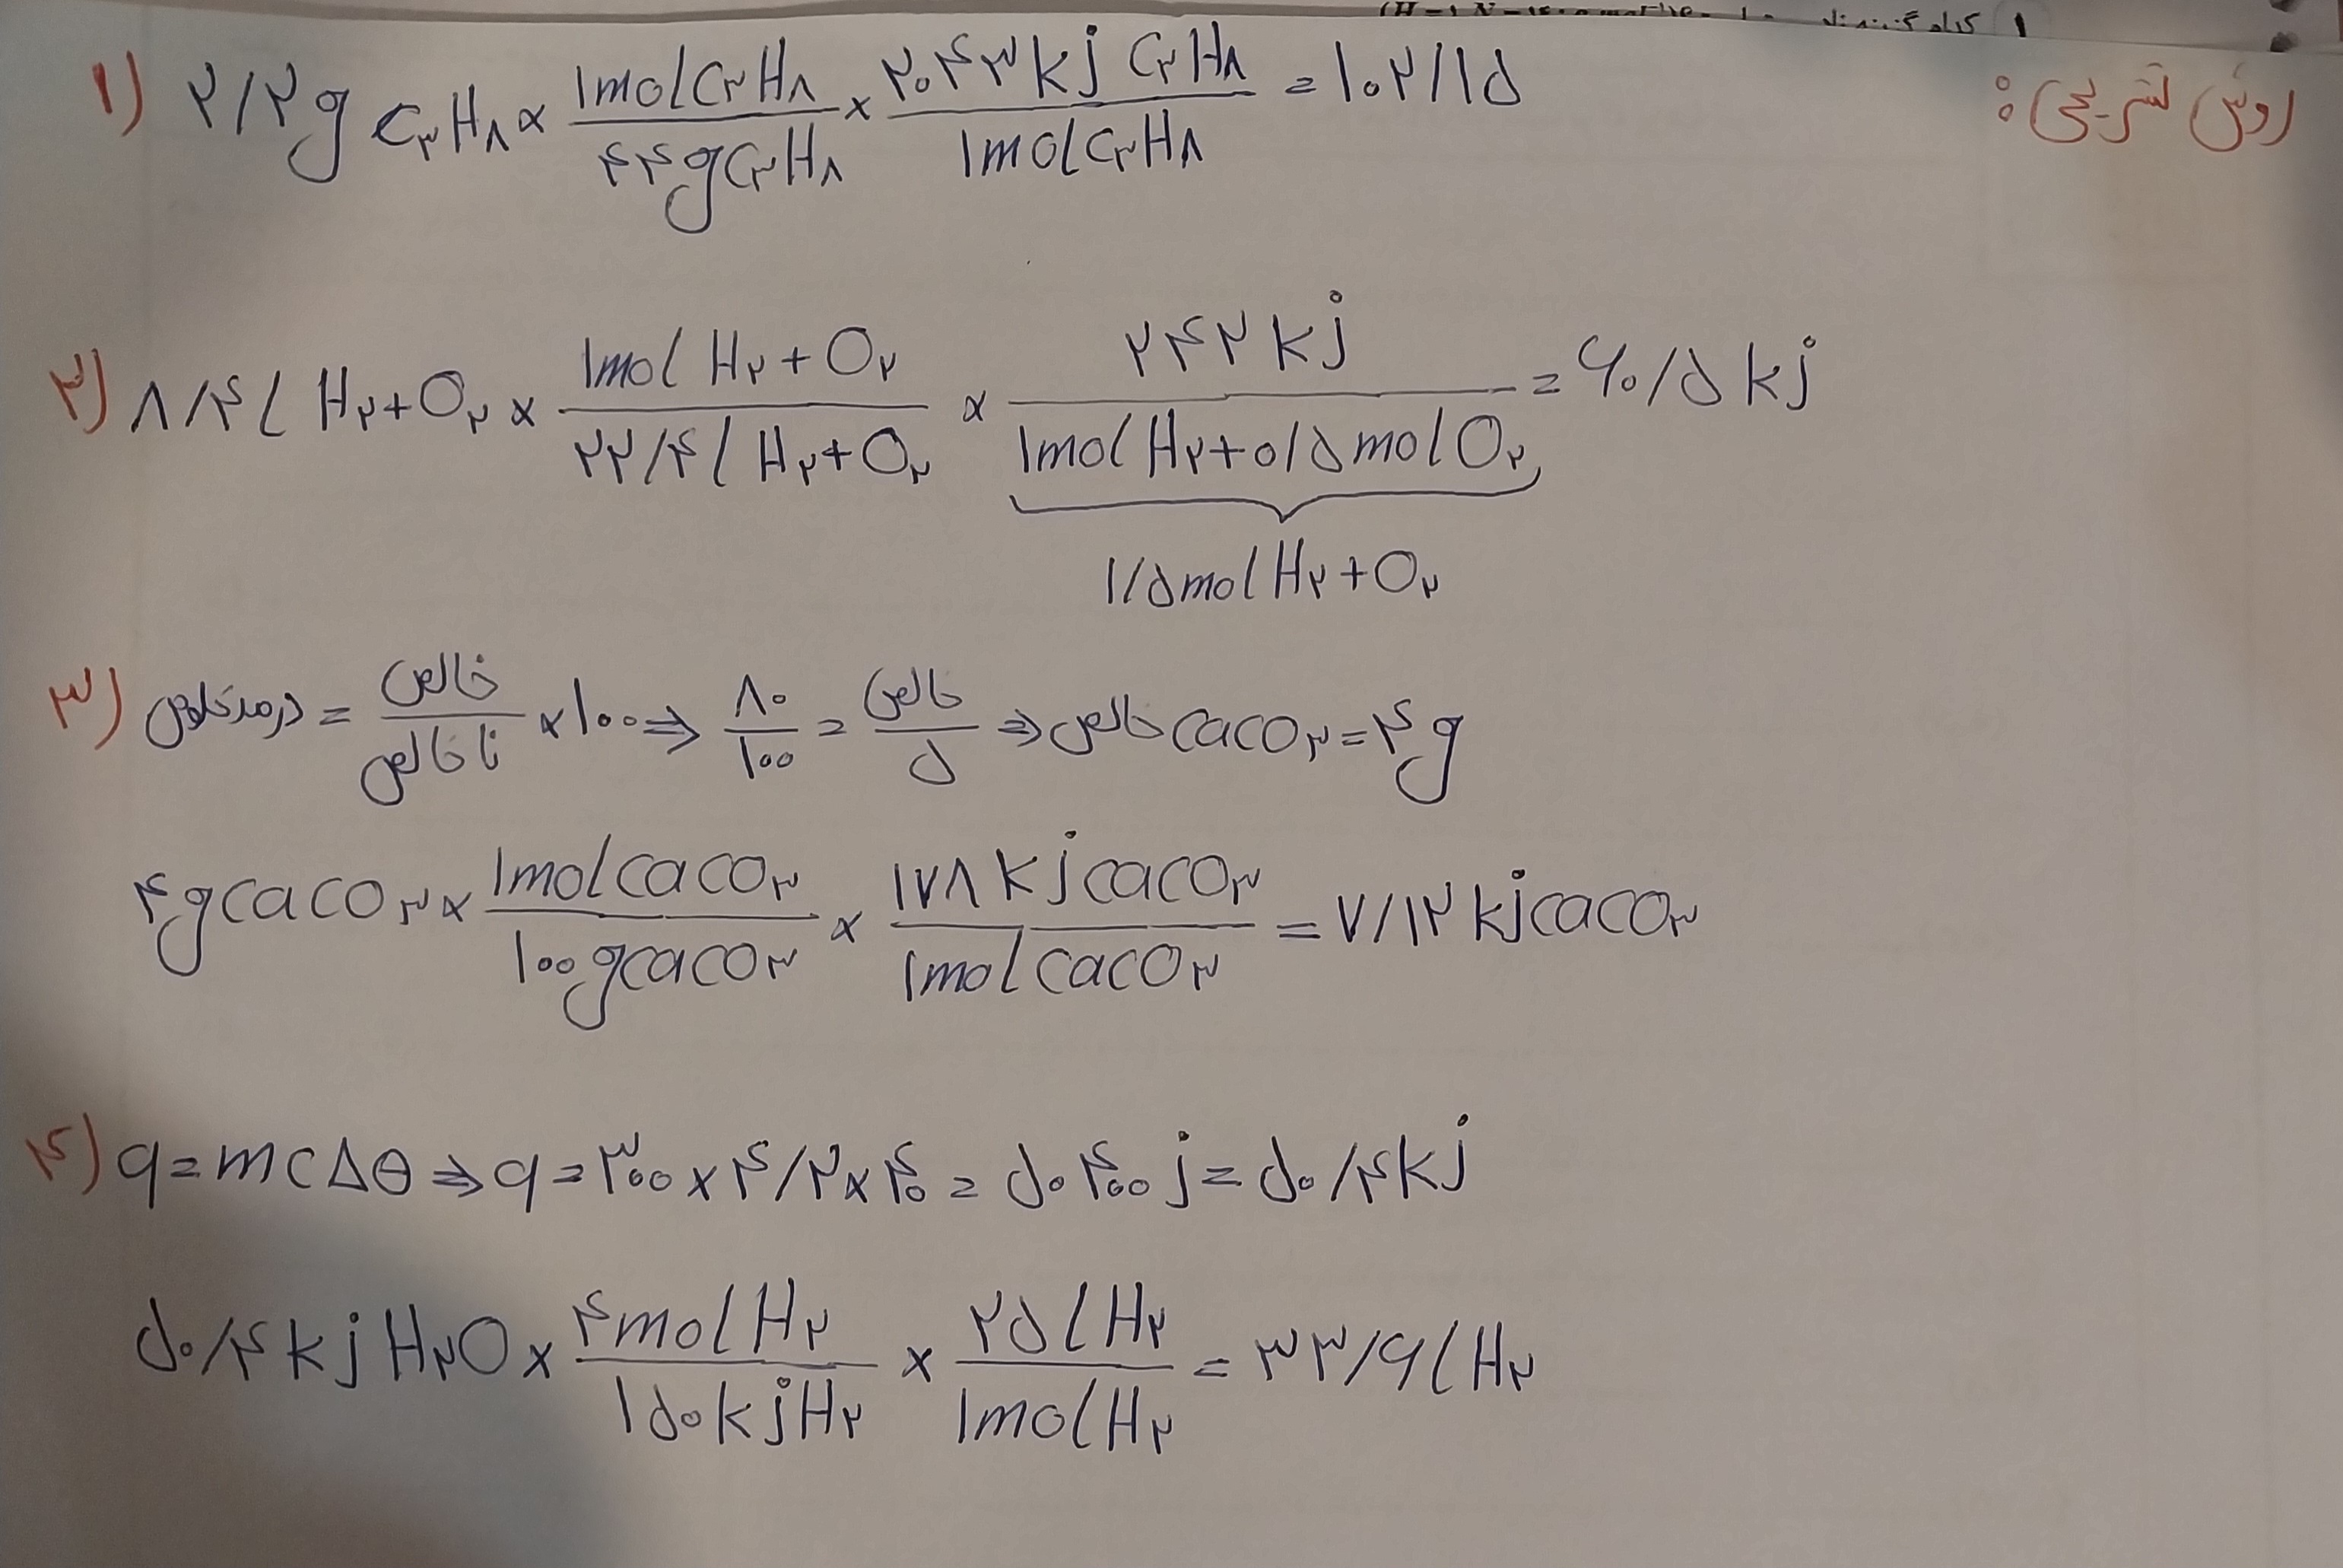 ۱ کدام گزینه
روش تشریحی:
۱) ۲/۲g C۳H۸ × 1molC۳H۸ / ۴۴gC۳H۸ × ۲۰۴۳kj C۳H۸ / 1molC۳H۸ = ۱۰۲/۱۵
۲) ۸/۴L H۲+O۲ × 1mol H۲+O۲ / ۲۲/۴L H۲+O۲ × ۲۴۲kj / 1mol H۲+۰/۵mol O۲ = ۶۰/۵kj
۱/۵mol H۲+O۲
۳) درصد خلوص = خالص / ناخالص × ۱۰۰ ⇒ ۸۰ / ۱۰۰ = خالص / ۵ ⇒ خالص caco۳ = ۴g
۴gcaco۳ × 1molcaco۳ / ۱۰۰gcaco۳ × ۱۷۸kjcaco۳ / 1molcaco۳ = ۷/۱۲kjcaco۳
۴) q=mcΔθ ⇒ q = ۳۰۰×۴/۲×۴۰ = ۵۰۴۰۰j = ۵۰/۴kj
۵۰/۴kjH۲O × ۴molH۲ / ۱۵۰kjH۲ × ۲۵LH۲ / 1molH۲ = ۳۳/۶LH۲